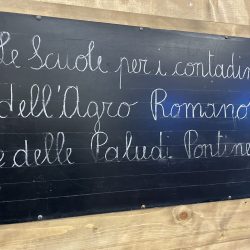 Le Scuole per i contadini
dell'Agro Romano
e delle Paludi Pontine